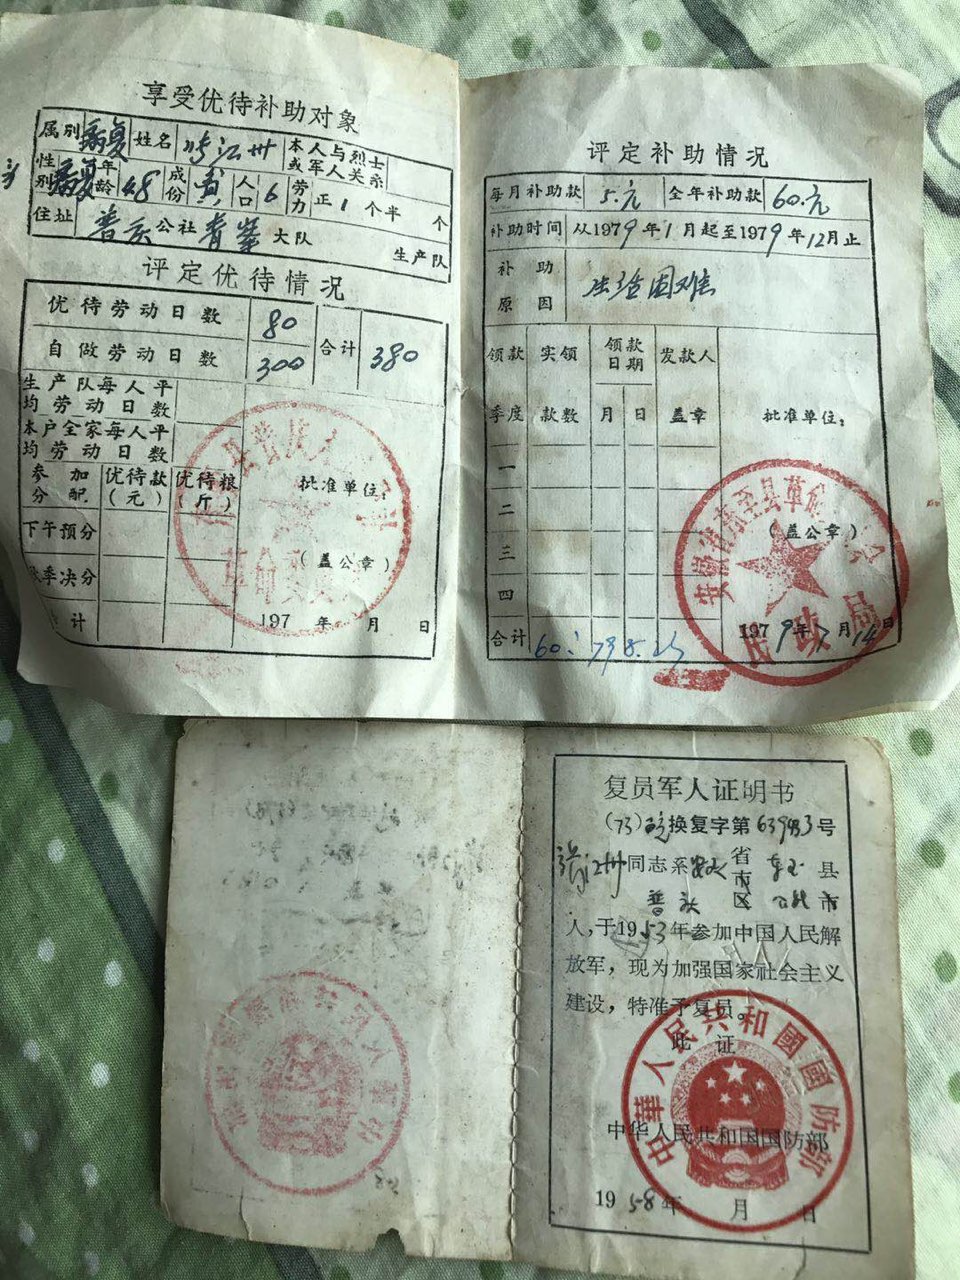 享受优待补助对象
属别 病复 姓名 江卅 本人与烈士或军人关系
性别 年龄 48 成份 贫 人口 6 劳力 正 1 个半 个
住址 公社 大队 生产队
评定优待情况
优待劳动日数 80 合计 380
自做劳动日数 300
生产队每人平均劳动日数
本户全家每人平均劳动日数
参加分配 优待款(元) 优待粮(斤) 批准单位:
下午预分 (盖公章)
季决分
计
革命委
197 年 月 日
评定补助情况
每月补助款 5.元 全年补助款 60.元
补助时间 从1979年1月起至1979年12月止
补助原因 生活困难
领款季度 实领款数 领款日期 月 日 发款人盖章 批准单位:
一
二
三
四
合计 60.
(盖公章)
安徽省东至县革命
民政局
1979年7月14日
复员军人证明书
(73)皖换复字第639483号
江卅同志系安徽省市区东至县市
人,于1953年参加中国人民解
放军,现为加强国家社会主义
建设,特准予复员。
此证
中華人民共和國國防部
中华人民共和国国防部
1958年 月 日